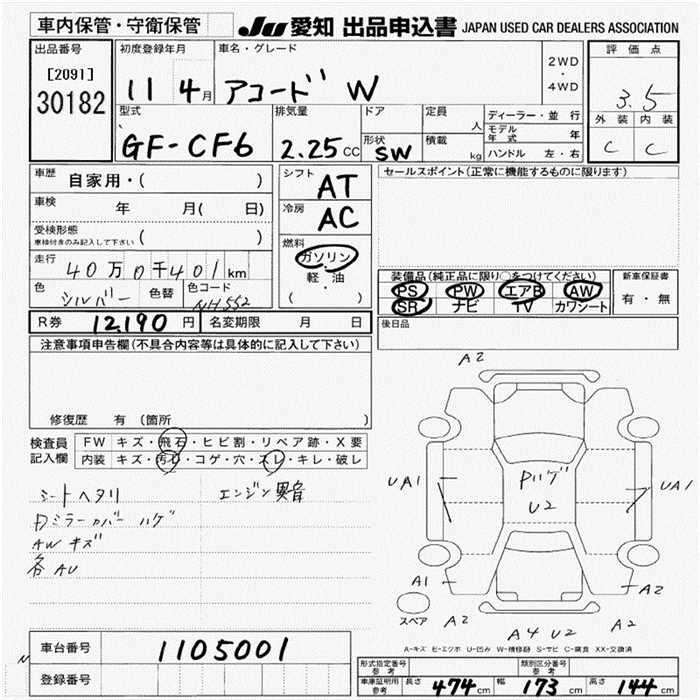 車内保管・守衛保管 JU 愛知 出品申込書 JAPAN USED CAR DEALERS ASSOCIATION
出品番号 初度登録年月 車名・グレード 2WD・4WD 評価点
[2091] 30182 11 4月 アコードW 3.5
型式 排気量 ドア 定員 人 ディーラー・並行 外装 内装
GF-CF6 2.25CC 形状 SW 積載 kg モデル年式 年 C C
ハンドル 左・右
車歴 自家用・( ) シフト AT セールスポイント(正常に機能するものに限ります)
車検 年 月( 日) 冷房 AC
受検形態 ( )
車検付きのみ記入して下さい
燃料 ガソリン
軽・油
( )
走行 40万0千401km 装備品(純正品に限り○をつけてください) 新車保証書
色 シルバー 色替 色コード NH552 PS PW エアB AW 有・無
SR ナビ TV カワシート
R券 12,190円 名変期限 月 日 後日品
注意事項申告欄(不具合内容等は具体的に記入して下さい)
修復歴 有(箇所
検査員記入欄 FW キズ・飛石・ヒビ割・リペア跡・X要
内装 キズ・汚れ・コゲ・穴・スレ・キレ・破レ
シートヘタリ エンジン異音
Dミラーカバーハゲ
AWキズ
各AU
A2
UA1 Pハゲ U2 UA1
A1 A2
スペア A2 A4 U2 A2
A-キズ E-エクボ U-凹み W-補修跡 S-サビ C-腐食 XX-交換済
車台番号 1105001
登録番号
N
形式指定番号 参考 類別区分番号 参考
車庫証明用 参考 長さ 474cm 幅 173cm 高さ 144cm